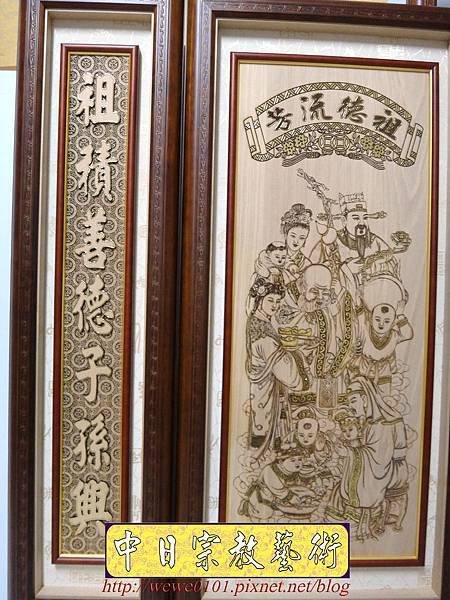 祖德流芳
祖積善德子孫興
中日宗教藝術
http://wewe0101.pixnet.net/blog